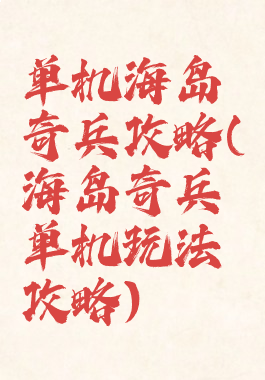 单机海岛
奇兵攻略(
海岛奇兵
单机玩法
攻略)